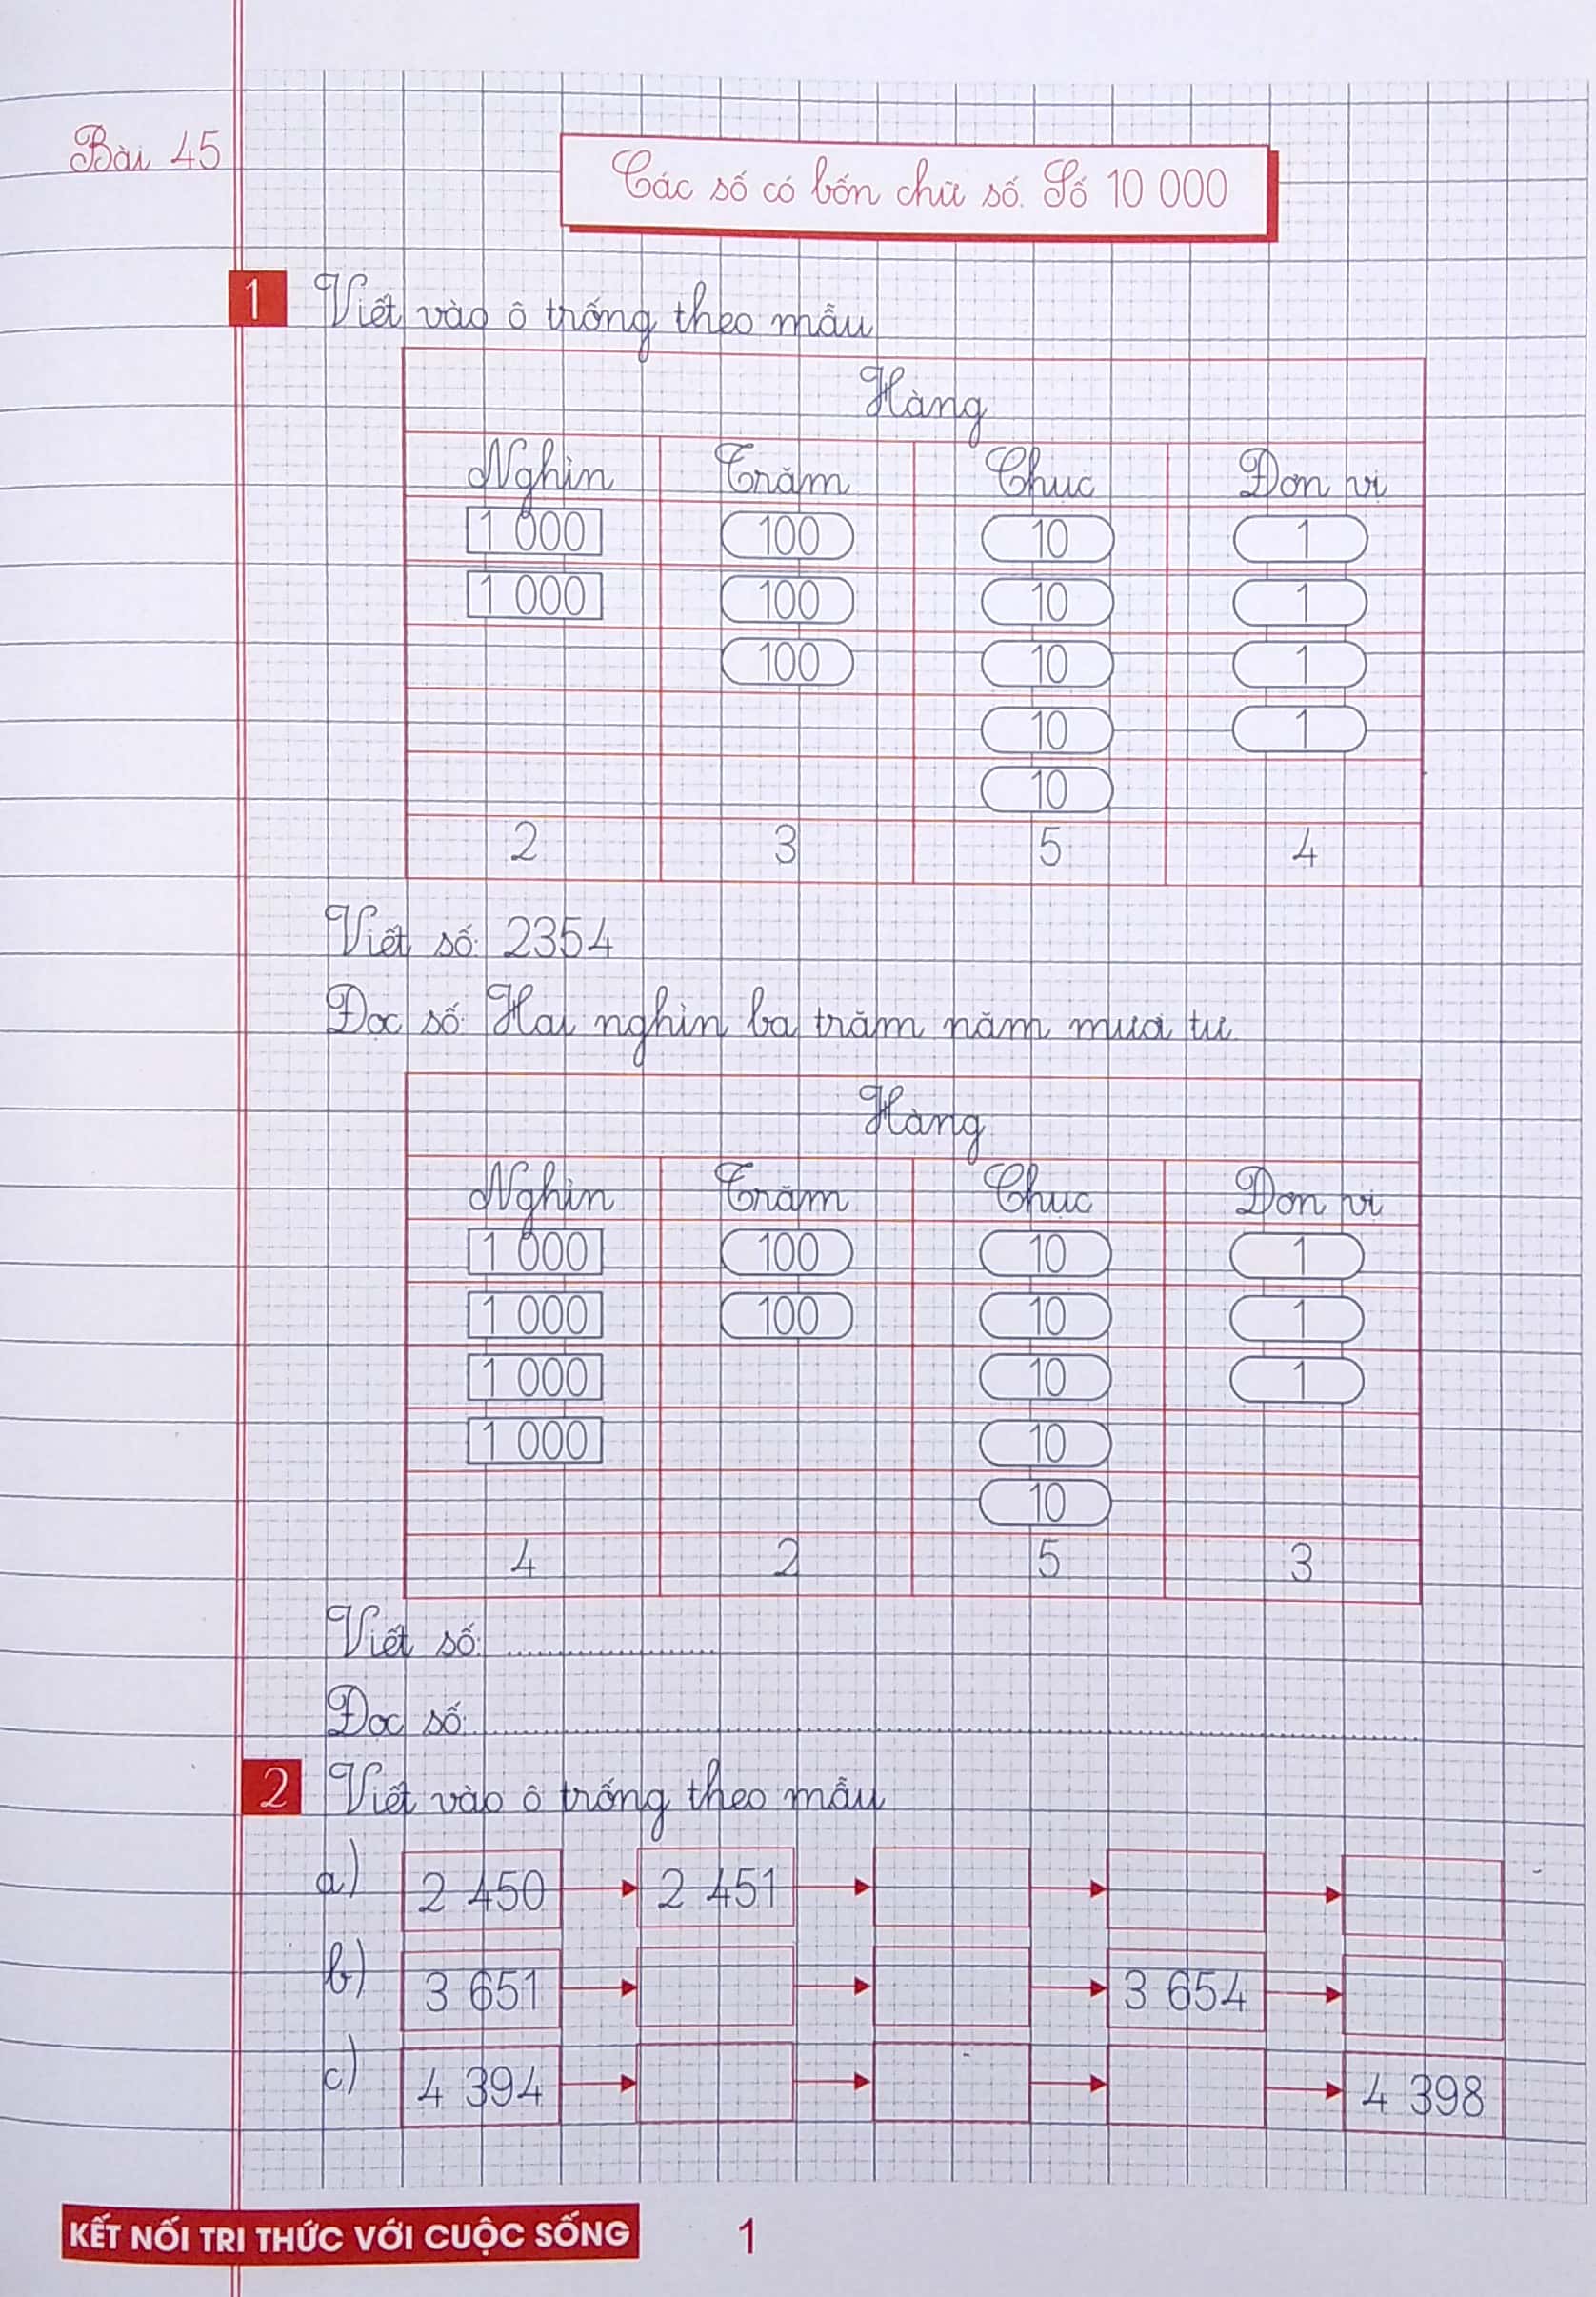 Bài 45
Các số có bốn chữ số. Số 10 000
1 Viết vào ô trống theo mẫu
Hàng
Nghìn Trăm Chục Đơn vị
1 000 100 10 1
1 000 100 10 1
100 10 1
10 1
10
2 3 5 4
Viết số: 2354
Đọc số: Hai nghìn ba trăm năm mươi tư
Hàng
Nghìn Trăm Chục Đơn vị
1 000 100 10 1
1 000 100 10 1
1 000 10 1
1 000 10
10
4 2 5 3
Viết số: ....................
Đọc số: ....................
2 Viết vào ô trống theo mẫu
a) 2 450 2 451
b) 3 651 3 654
c) 4 394 4 398
KẾT NỐI TRI THỨC VỚI CUỘC SỐNG 1